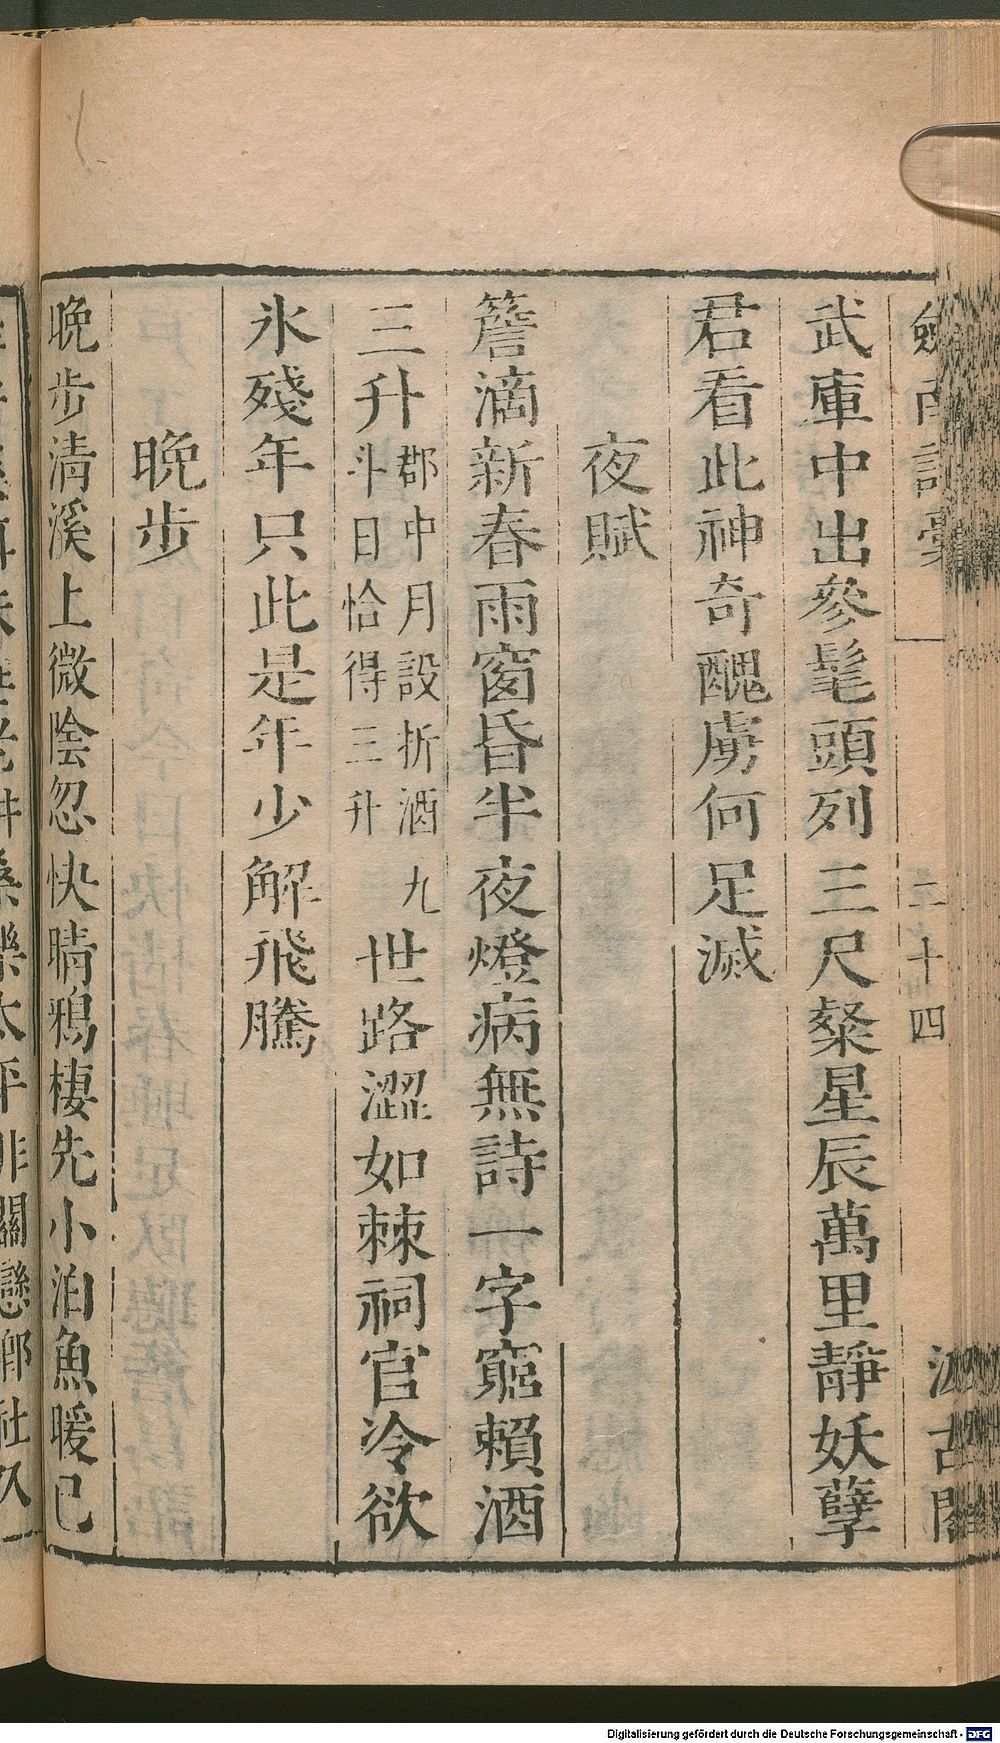 劍南詩稾
二十四
汲古閣
武庫中出參髦頭列三尺粲星辰萬里靜妖孽
君看此神奇醜虜何足滅
夜賦
簷滴新春雨窗昏半夜燈病無詩一字窮賴酒
三升郡中月設折酒九斗日恰得三升世路澀如棘祠官冷欲
氷殘年只此是年少解飛騰
晚步
晚步清溪上微陰忽快晴鴉棲先小泊魚暖已
太平非關戀鄉社久
Digitalisierung gefördert durch die Deutsche Forschungsgemeinschaft - DFG